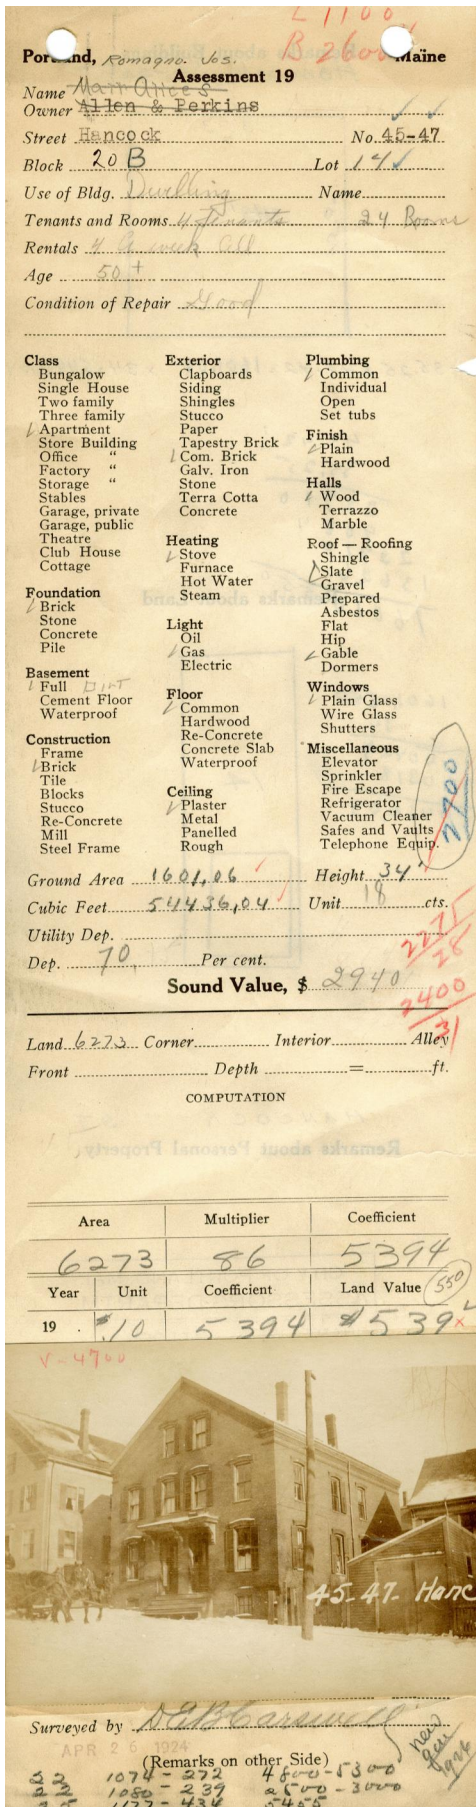 L 1100
B 2600
Portland, Romagno. Jos. Maine
Assessment 19
Name
Owner Allen & Perkins
Street Hancock No. 45-47
Block 20 B Lot 14
Use of Bldg. Dwelling Name
Tenants and Rooms 4 Tenants 24 Rooms
Rentals 4 a week all
Age 50+
Condition of Repair Good
Class
Bungalow
Single House
Two family
Three family
Apartment
Store Building
Office "
Factory "
Storage "
Stables
Garage, private
Garage, public
Theatre
Club House
Cottage
Foundation
Brick
Stone
Concrete
Pile
Basement
Full Dirt
Cement Floor
Waterproof
Construction
Frame
Brick
Tile
Blocks
Stucco
Re-Concrete
Mill
Steel Frame
Exterior
Clapboards
Siding
Shingles
Stucco
Paper
Tapestry Brick
Com. Brick
Galv. Iron
Stone
Terra Cotta
Concrete
Heating
Stove
Furnace
Hot Water
Steam
Light
Oil
Gas
Electric
Floor
Common
Hardwood
Re-Concrete
Concrete Slab
Waterproof
Ceiling
Plaster
Metal
Panelled
Rough
Plumbing
Common
Individual
Open
Set tubs
Finish
Plain
Hardwood
Halls
Wood
Terrazzo
Marble
Roof — Roofing
Shingle
Slate
Gravel
Prepared
Asbestos
Flat
Hip
Gable
Dormers
Windows
Plain Glass
Wire Glass
Shutters
Miscellaneous
Elevator
Sprinkler
Fire Escape
Refrigerator
Vacuum Cleaner
Safes and Vaults
Telephone Equip.
2700
Ground Area 1601,06 Height 34
Cubic Feet 54436,04 Unit 18 cts.
Utility Dep.
2275
28
Dep. 70 Per cent.
Sound Value, $ 2940
2400
31
Land 6273 Corner Interior Alley
Front Depth = ft.
COMPUTATION
Remarks about Personal Property
Area Multiplier Coefficient
6273 86 5394
Year Unit Coefficient Land Value 550
19 . $.10 5394 $539 x
V-4700
45-47- Hanc
Surveyed by D E B Carswell
APR 26 1924
new
1926
(Remarks on other Side)
22 1074 - 272 4800 - 5300
22 1080 - 239 2500 - 3000